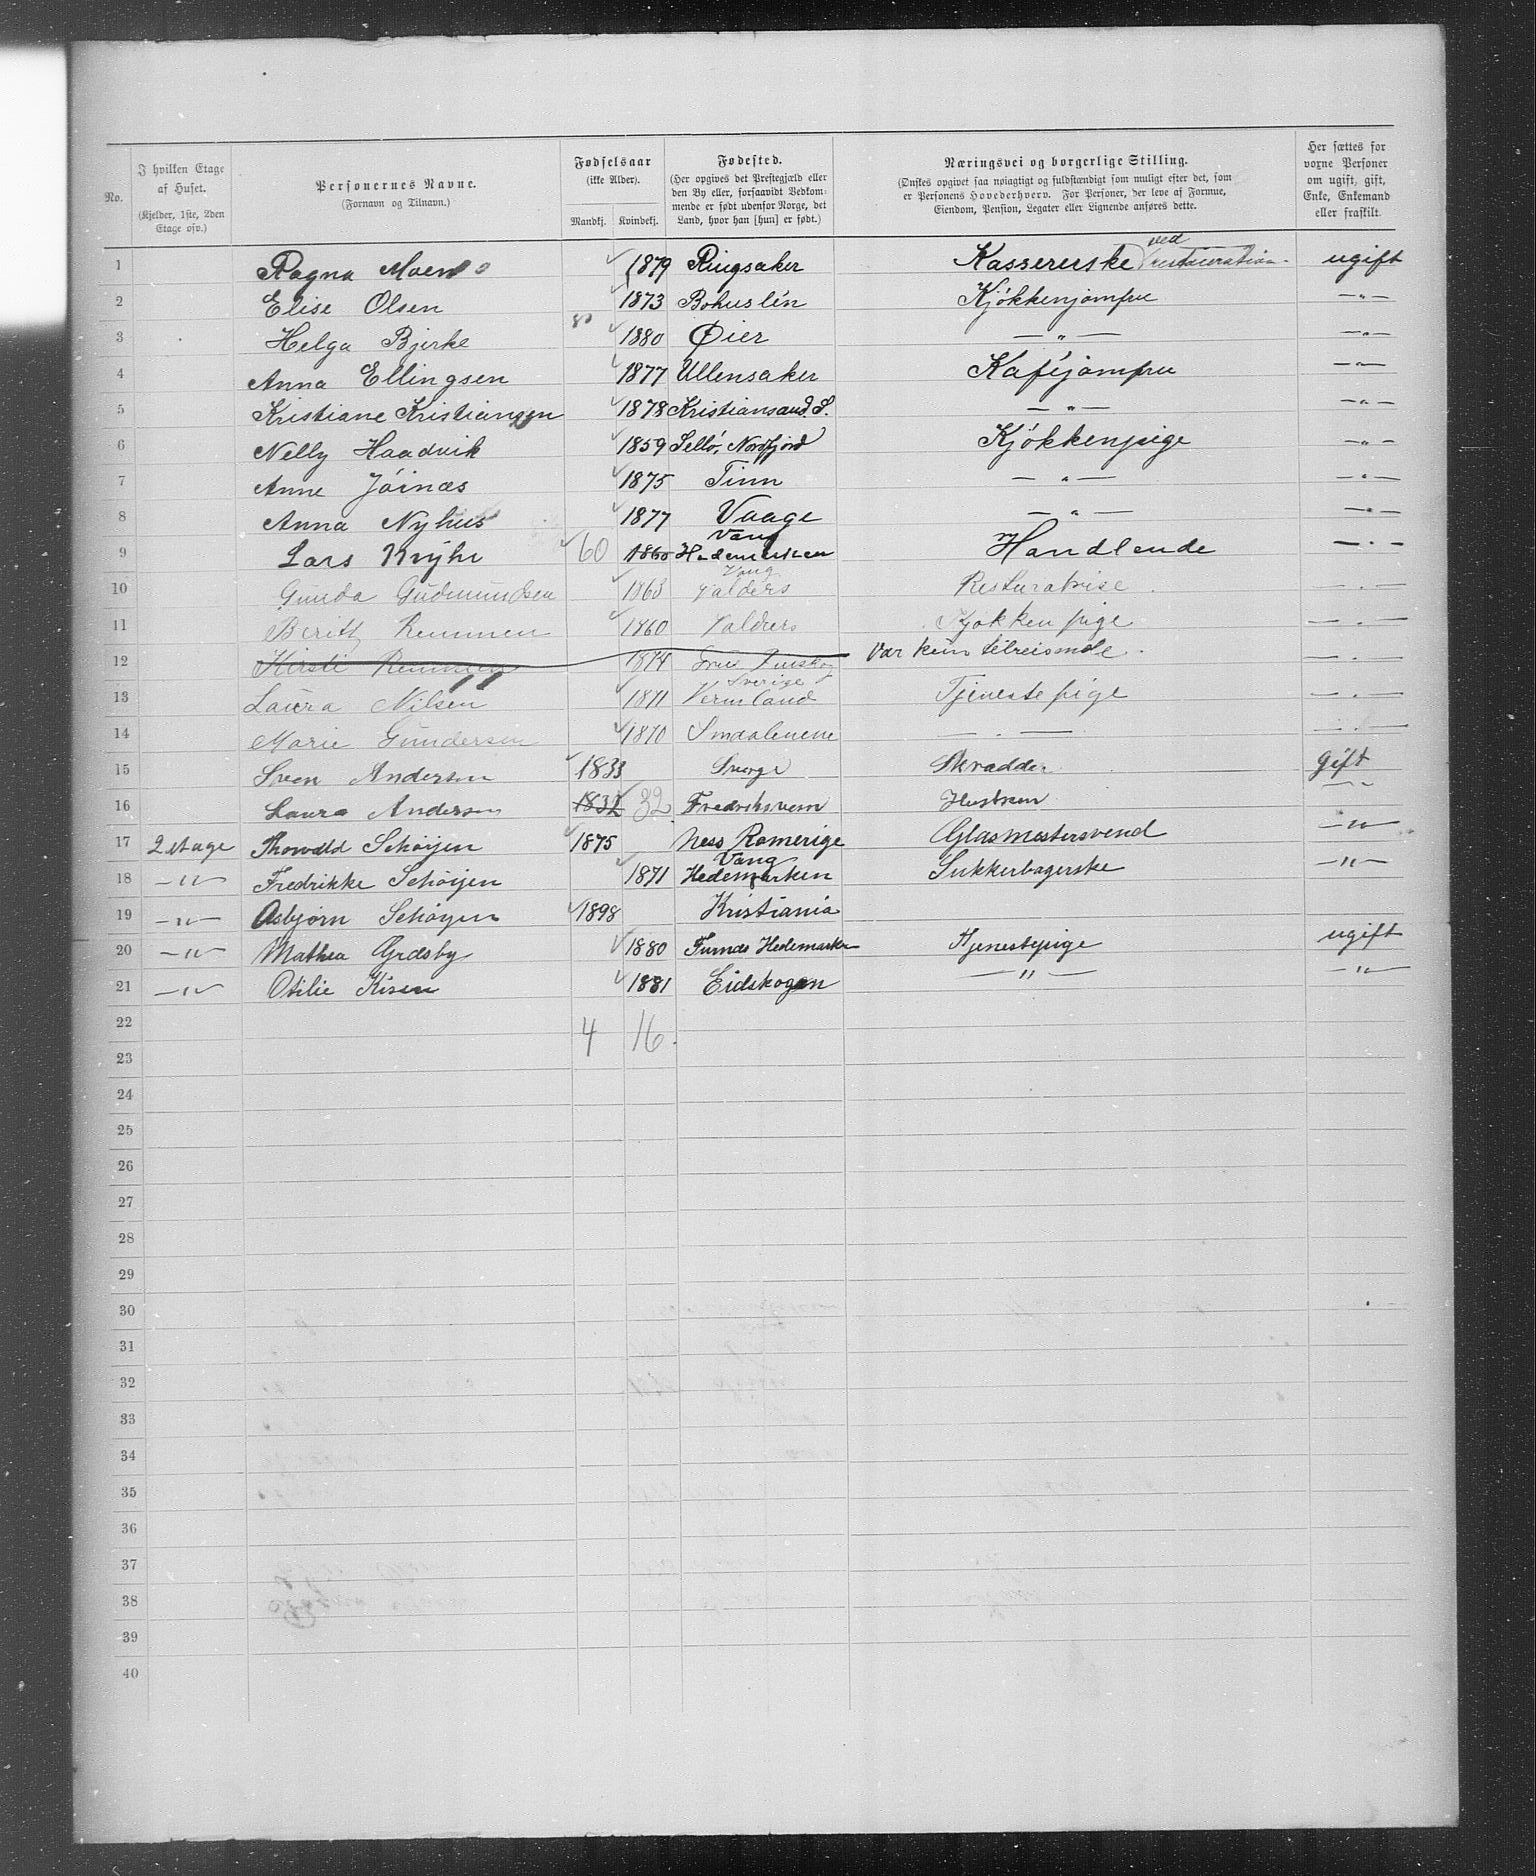 No.
I hvilken Etage af Huset.
(Kjelder, 1ste, 2den Etage osv.)
Personernes Navne.
(Fornavn og Tilnavn.)
Fødselsaar
(ikke Alder).
Mandkj. Kvindekj.
Fødested.
(Her opgives det Præstegjæld eller den By eller, forsaavidt Vedkommende er født udenfor Norge, det Land, hvor han [hun] er født.)
Næringsvei og borgerlige Stilling.
(Ønskes opgivet saa nøiagtigt og fuldstændigt som muligt efter det, som er Personens Hovederhverv. For Personer, der leve af Formue, Eiendom, Pension, Legater eller Lignende anføres dette.
Her sættes for voxne Personer om ugift, gift, Enke, Enkemand eller fraskilt.
1 Ragna Moen 1879 Ringsaker Kassererske ved restauration ugift
2 Elise Olsen 1873 Bohuslén Kjökkenjomfru —"—
3 Helga Bjerke 80 1880 Øier —"— —"—
4 Anna Ellingsen 1877 Ullensaker Kaféjomfru —"—
5 Kristiane Kristiansen 1878 Kristiansand. S. —"— —"—
6 Nelly Haadvik 1859 Sellö, Nordfjord Kjökkenpige —"—
7 Anne Jöinæs 1875 Tinn —"— —"—
8 Anna Nyhus 1877 Vaage —"— —"—
9 Lars Kryhr 60 1860 Vang Hedemarken Handlende —"—
10 Gunda Gudmundsen 1863 Vang Valders —"—
11 Beritt Remmen 1860 Valders Kjøkken pige —"—
12 Kirsti Remmen 1874 Var kun tilreisende —"—
13 Laura Nilsen 1871 Sverige Vermland Tjeneste pige —"—
14 Marie Gundersen 1870 Smaalenene —"— —"—
15 Sven Andersen 1833 Sverge Skrædder gift
16 Laura Andersen 1832 32 Fredriksvern Hustru —"—
17 2 etage Thorvald Schøijen 1875 Næss Romerige Glasmestersvend —"—
18 —"— Fredrikke Schøijen 1871 Vang Hedemarken Sukkerbagerske —"—
19 —"— Asbjørn Schøyen 1898 Kristiania
20 —"— Mathea 1880 Furnes Hedemarken Tjenestepige ugift
21 —"— Otilie 1881 Eidskogen —"— —"—
22 4 16.
23
24
25
26
27
28
29
30
31
32
33
34
35
36
37
38
39
40